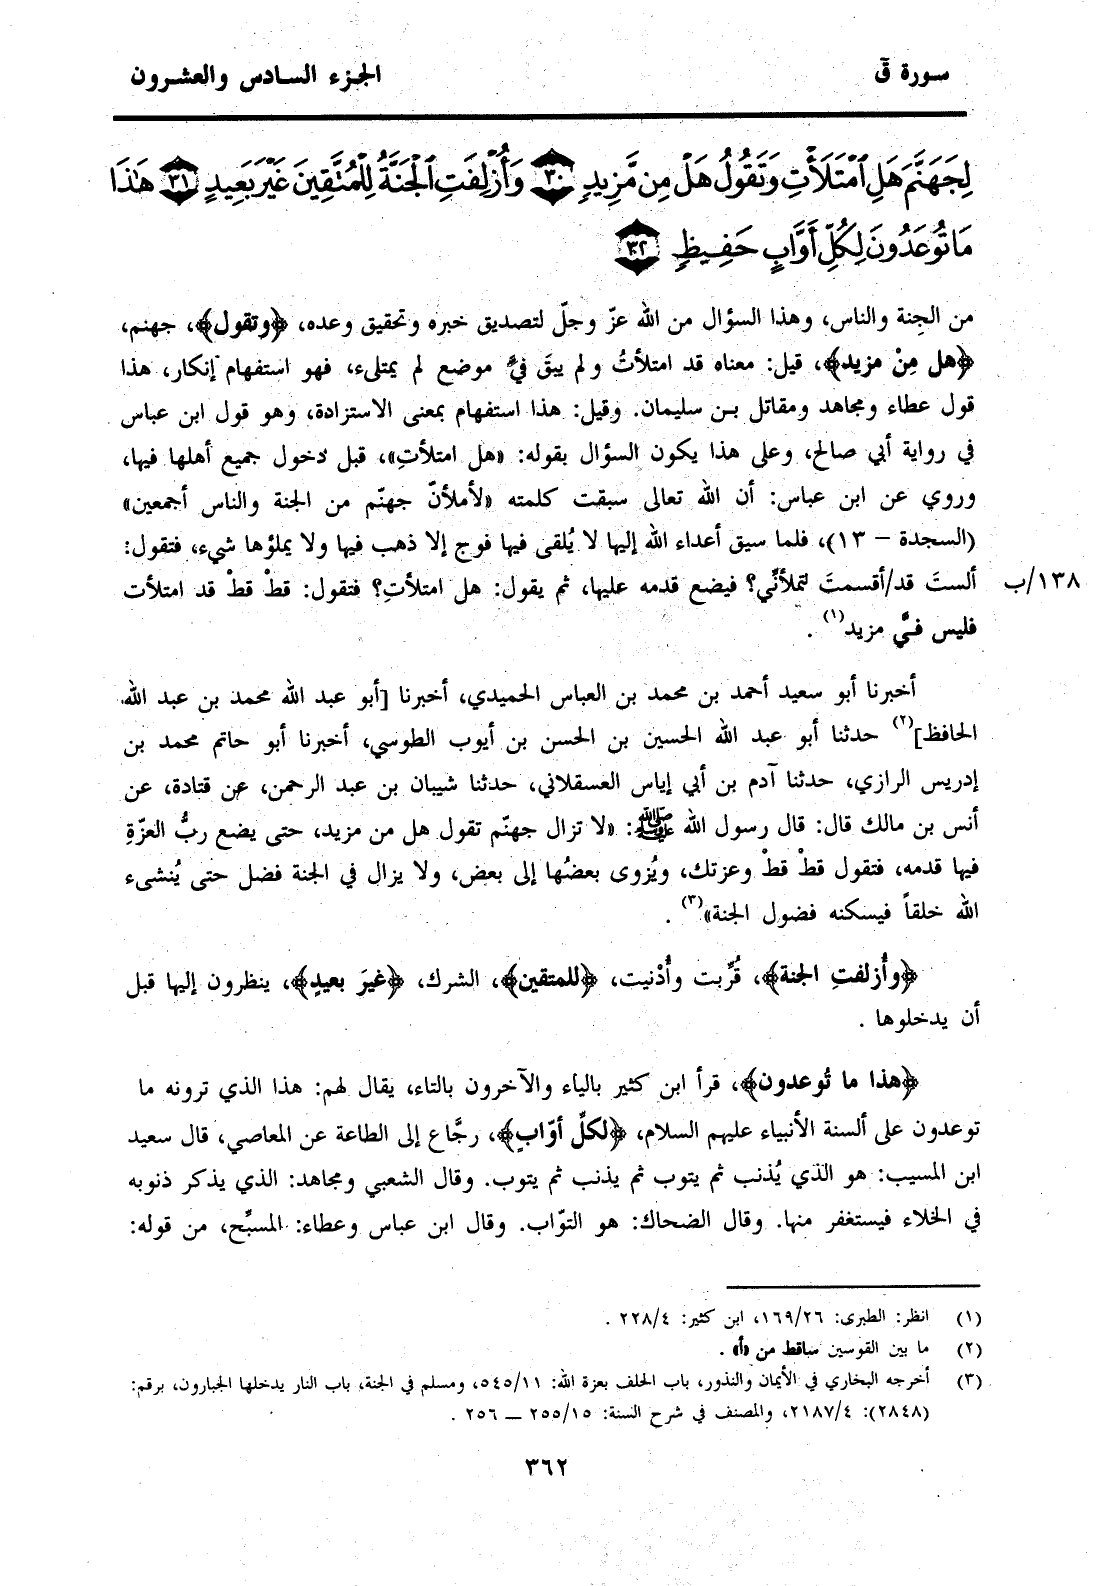 سورة قٓ
الجزء السادس والعشرون
لِجَهَنَّمَ هَلِ ٱمْتَلَأْتِ وَتَقُولُ هَلْ مِن مَّزِيدٍ ﴿٣٠﴾ وَأُزْلِفَتِ ٱلْجَنَّةُ لِلْمُتَّقِينَ غَيْرَ بَعِيدٍ ﴿٣١﴾ هَـٰذَا
مَا تُوعَدُونَ لِكُلِّ أَوَّابٍ حَفِيظٍ ﴿٣٢﴾
من الجِنة والناس، وهذا السؤال من الله عزّ وجلّ لتصديق خبره وتحقيق وعده، ﴿وتقول﴾، جهنم،
﴿هل مِنْ مزيد﴾، قيل: معناه قد امتلأتُ ولم يبقَ فيَّ موضع لم يمتلىء، فهو استفهام إنكار، هذا
قول عطاء ومجاهد ومقاتل بـن سليمان. وقيل: هذا استفهام بمعنى الاستزادة، وهو قول ابن عباس
في رواية أبي صالح، وعلى هذا يكون السؤال بقوله: «هل امتلأتِ»، قبل دخول جميع أهلها فيها،
وروي عن ابن عباس: أن الله تعالى سبقت كلمته «لأملأنّ جهنّم من الجنة والناس أجمعين»
(السجدة – ١٣)، فلما سيق أعداء الله إليها لا يُلقى فيها فوج إلا ذهب فيها ولا يملؤها شيء، فتقول:
ألستَ قد/أقسمتَ لتملأنِّي؟ فيضع قدمه عليها، ثم يقول: هل امتلأتِ؟ فتقول: قطْ قطْ قد امتلأت ١٣٨/ب
فليس فيَّ مزيد(١) .
أخبرنا أبو سعيد أحمد بن محمد بن العباس الحميدي، أخبرنا [أبو عبد الله محمد بن عبد الله
الحافظ](٢) حدثنا أبو عبد الله الحسين بن الحسن بن أيوب الطوسي، أخبرنا أبو حاتم محمد بن
إدريس الرازي، حدثنا آدم بن أبي إياس العسقلاني، حدثنا شيبان بن عبد الرحمن، عن قتادة، عن
أنس بن مالك قال: قال رسول الله ﷺ: «لا تزال جهنّم تقول هل من مزيد، حتى يضع ربُّ العزّةِ
فيها قدمه، فتقول قطْ قطْ وعزتك، ويُزوى بعضُها إلى بعض، ولا يزال في الجنة فضل حتى يُنشىء
الله خلقاً فيسكنه فضول الجنة»(٣) .
﴿وأُزلفتِ الجنة﴾، قُرِّبت وأُدْنيت، ﴿للمتقين﴾، الشرك، ﴿غيرَ بعيدٍ﴾، ينظرون إليها قبل
أن يدخلوها .
﴿هذا ما تُوعدون﴾، قرأ ابن كثير بالياء والآخرون بالتاء، يقال لهم: هذا الذي ترونه ما
توعدون على ألسنة الأنبياء عليهم السلام، ﴿لكلِّ أوّابٍ﴾، رجَّاع إلى الطاعة عن المعاصي، قال سعيد
ابن المسيب: هو الذي يُذنب ثم يتوب ثم يذنب ثم يتوب. وقال الشعبي ومجاهد: الذي يذكر ذنوبه
في الخلاء فيستغفر منها. وقال الضحاك: هو التوّاب. وقال ابن عباس وعطاء: المسبِّح، من قوله:
(١) انظر: الطبرى: ١٦٩/٢٦، ابن كثير: ٢٢٨/٤ .
(٢) ما بين القوسين ساقط من «أ» .
(٣) أخرجه البخاري في الأيمان والنذور، باب الحلف بعزة الله: ٥٤٥/١١، ومسلم في الجنة، باب النار يدخلها الجبارون، برقم:
(٢٨٤٨): ٢١٨٧/٤، والمصنف في شرح السنة: ٢٥٥/١٥ — ٢٥٦ .
٣٦٢